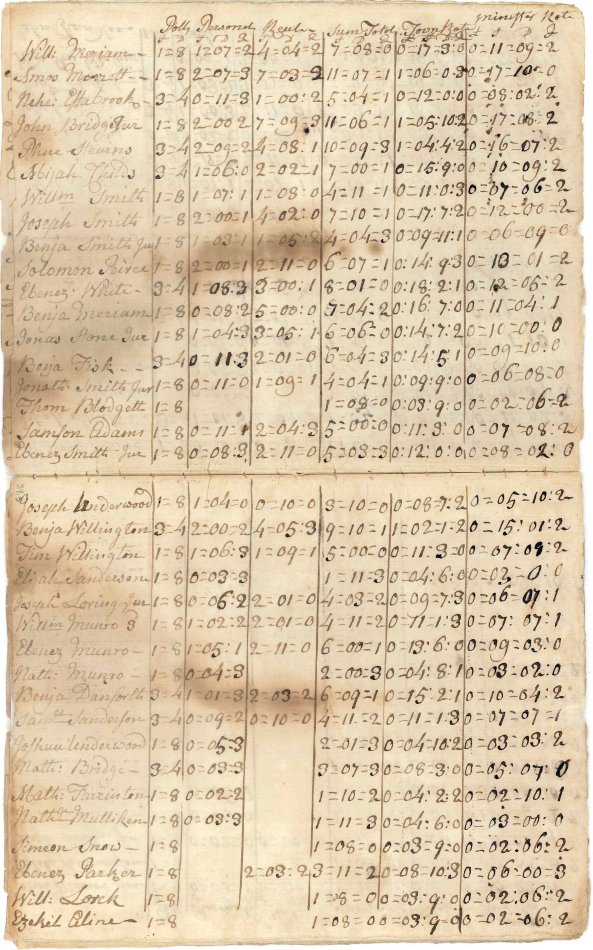 Polls Personal Reule Sum Total Town Rate minist Rate
Will: Meriam 1=8 1=07=2 4=04=2 7=08=0 0=17=3:0 0=11=09=2
Amos Merrett 1=8 2=07=3 7=03=2 11=07=1 1=06:0:3 0=17=10=0
Nehe: Estabrook 3=4 0=11=3 1=00:2 5=04=1 0=12:0:0 0=08:02:2
John Bridge Jur 1=8 2=00=2 7=09=3 11=06=1 1=05:10:2 0=17=08:2
Phine Stearns 3=4 2=09=2 4=08:1 10=09=3 1=04:4:2 0=16=07:2
Abijah Childs 3=4 1=06:0 2=02=1 7=00=1 0=15:9:0 0=10=09:2
Willm Smith 1=8 1=07:1 1=08:0 4=11=1 0=11:0:3 0=07=06=2
Joseph Smith 1=8 2=00=1 4=02:0 7=10=1 0=17:7:2 0=12=00=2
Benja Smith Jur 1=8 1=03=1 1=05:2 4=04=3 0:09=11:1 0=06=09=0
Solomon Peirce 1=8 2=00=1 2=11=0 6=07=1 0:14:9:3 0=13=01=2
Ebenez: White 3=4 1=08:3 3=00:1 8=01=0 0=18:2:1 0=12=05:2
Benja Meriam 1=8 0=08:2 5=00:0 7=04:2 0:16:7:0 0=11=04:1
Jonas Stone Jur 1=8 1=04:3 3=05:1 6=06=0 0:14=7:2 0=10=00:0
Benja Fisk 3=4 0=11:3 2=01=0 6=04=3 0:14:5:1 0=09=10:0
Jonath: Smith Jur 1=8 0=11=0 1=09=1 4=04=1 0:09:9:0 0=06=08=0
Thom Blodgett 1=8 1=08=0 0:03:9:0 0=02=06=2
Samson Adams 1=8 0=11=1 2=04:3 5=00:0 0=11:3:0 0=07=08:2
Ebenez Smith Jur 1=8 0=08:3 2=11=0 5=03=3 0:12:0:0 0=08=02:0
Joseph Underwood 1=8 1=04=0 0=10=0 3=10=0 0=08=7:2 0=05=10:2
Benja Wellington 3=4 2=00=2 4=05:3 9=10=1 1=02:1=2 0=15:01:2
Tim Wellington 1=8 1=06:3 1=09=1 5=00=0 0=11:3=0 0=07:09:2
Elijah Sanderson 1=8 0=03=3 1=11=3 0=04:6:0 0=02=0=0
Joseph Loring Jur 1=8 0=06:2 2=01=0 4=03=2 0=09=7:3 0=06=07:1
Willm Munro 3 1=8 1=02=2 2=01=0 4=11=2 0=11=1:3 0=07:07:1
Ebenez Munro 1=8 1=05:1 2=11=0 6=00=1 0=13:6:0 0=09=03:0
Nath: Munro 1=8 0=04=3 2=00:3 0=04:8:1 0=03=02:0
Benja Danforth 3=4 1=01=3 2=03=2 6=09=1 0=15:2:1 0=10=04:2
Samll Sanderson 3=4 0=09=2 0=10=0 4=11=2 0=11=1:3 0=07=07=1
Joshua Underwood 1=8 0=05:3 2=01=3 0=04:10:2 0=03=03:2
Math: Bridge 3=4 0=03=3 3=07=3 0=08=3:0 0=05:07:0
Nath: Farrinton 1=8 0=02=2 1=10=2 0=04:2:2 0=02=10:1
Nathl Mulliken 1=8 0=03:3 1=11=3 0=04:6:0 0=03=00:0
Simeon Snow 1=8 1=08=0 0=03:9:0 0=02:06:2
Ebenez Parker 1=8 2=03:2 3=11=2 0=08=10:3 0=06=00=3
Will: Lock 1=8 1=08=0 0=03=9:0 0=02:06:2
Ezekil Cline 1=8 1=08=0 0=03=9:0 0=02=06:2